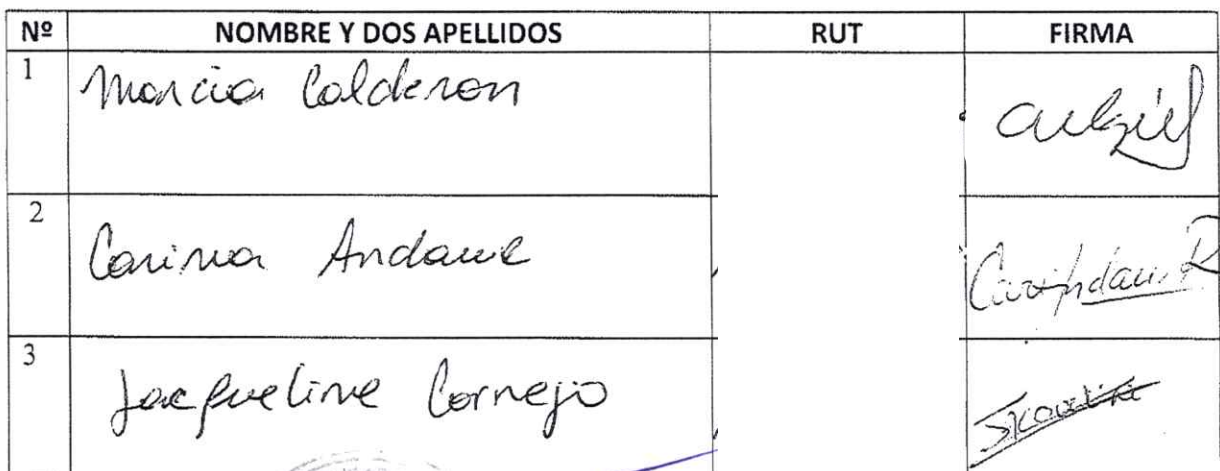 Nº NOMBRE Y DOS APELLIDOS RUT FIRMA
1 Marcia Calderon
2 Carina Andaur
3 Jacqueline Cornejo